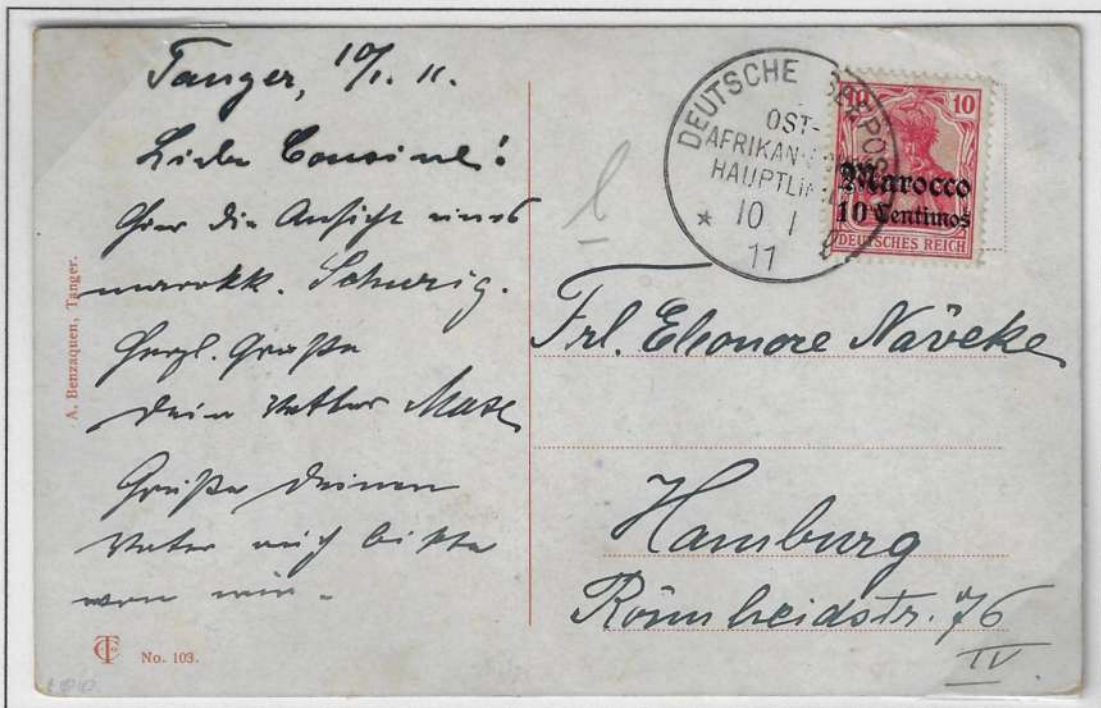 Tanger, 10/1. 11.
Liebe Cousine!
Hier die Ansicht eines
marokk.
Herzl. Grüße
Dein Vetter Max
Grüße Deinen
Vater auch bitte
von mir.
A. Benzaquen, Tanger.
No. 103.
DEUTSCHE SEEPOST
OST-
AFRIKAN
HAUPTLIN
10 1
11
10 10
Marocco
10 Centimos
DEUTSCHES REICH
Frl. Eleonore Näveke
Hamburg
Rönnheidstr. 76
IV